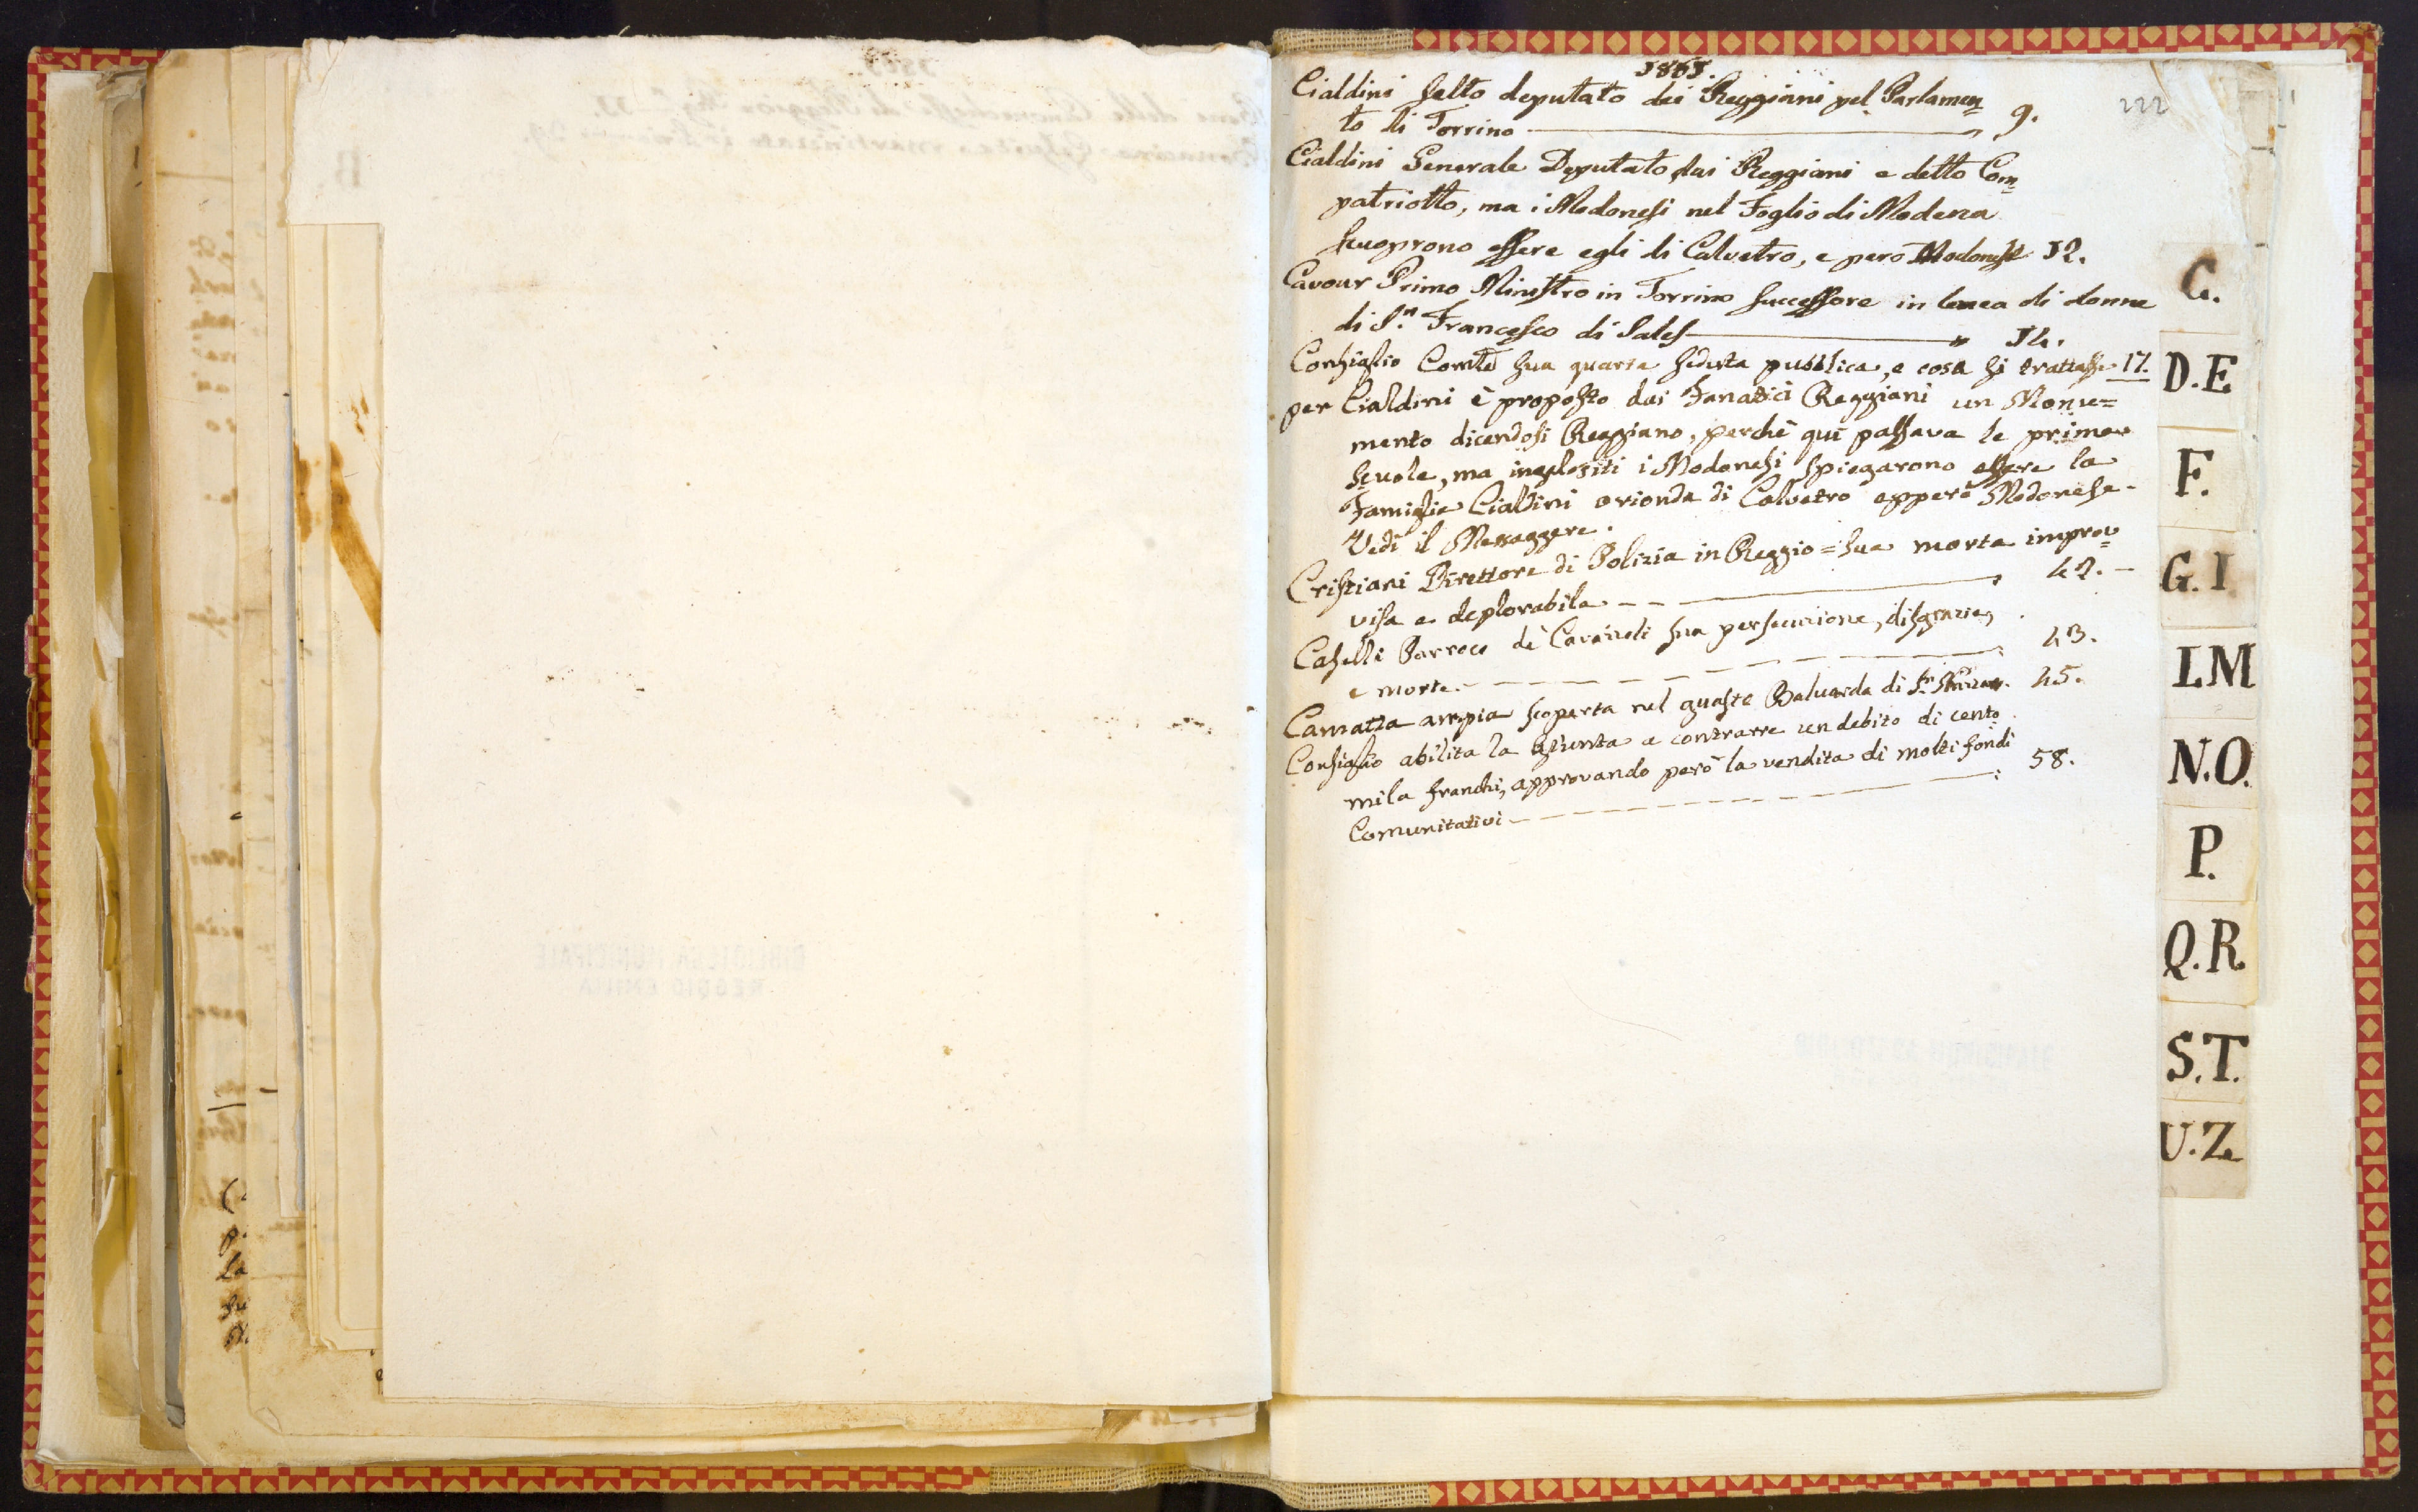 1861.
222
Cialdini fatto deputato dei Reggiani pel Parlamen=
to di Torrino 9.
Cialdini Generale Deputato dai Reggiani e detto Com=
patriotto, ma i Modonesi nel Foglio di Modena
scuoprono essere egli di Calvetro, e però Modonese 12.
Cavour Primo Ministro in Torrino successore in linea di donne
di S.n Francesco di Sales 14.
Consiglio Com.le sua quarta seduta pubblica, e cosa si trattasse 17.
per Cialdini è proposto dai Fanatici Reggiani un Monu=
mento dicendosi Reggiano, perchè quì passava le prime
scuole, ma ingelositi i Modonesi spiegarono essere la
Famiglia Cialdini orionda di Calvetro epperò Modonese.
Vedi il Messaggere.
Cristiani Direttore di Polizia in Reggio = sua morte improv=
visa e deplorabile 42.
Caselli Parroco de' Caviuoli sua persecuzione, disgrazie,
e morte. 43.
Camatta ampia scoperta nel guasto Baluardo di S.n 45.
Consiglio abilita la Giunta a contrarre un debito di cento
mila franchi, approvando però la vendita di molti fondi
Comunitativi 58.
C.
D.E
F.
G.I
L.M
N.O.
P.
Q.R.
S.T.
U.Z.